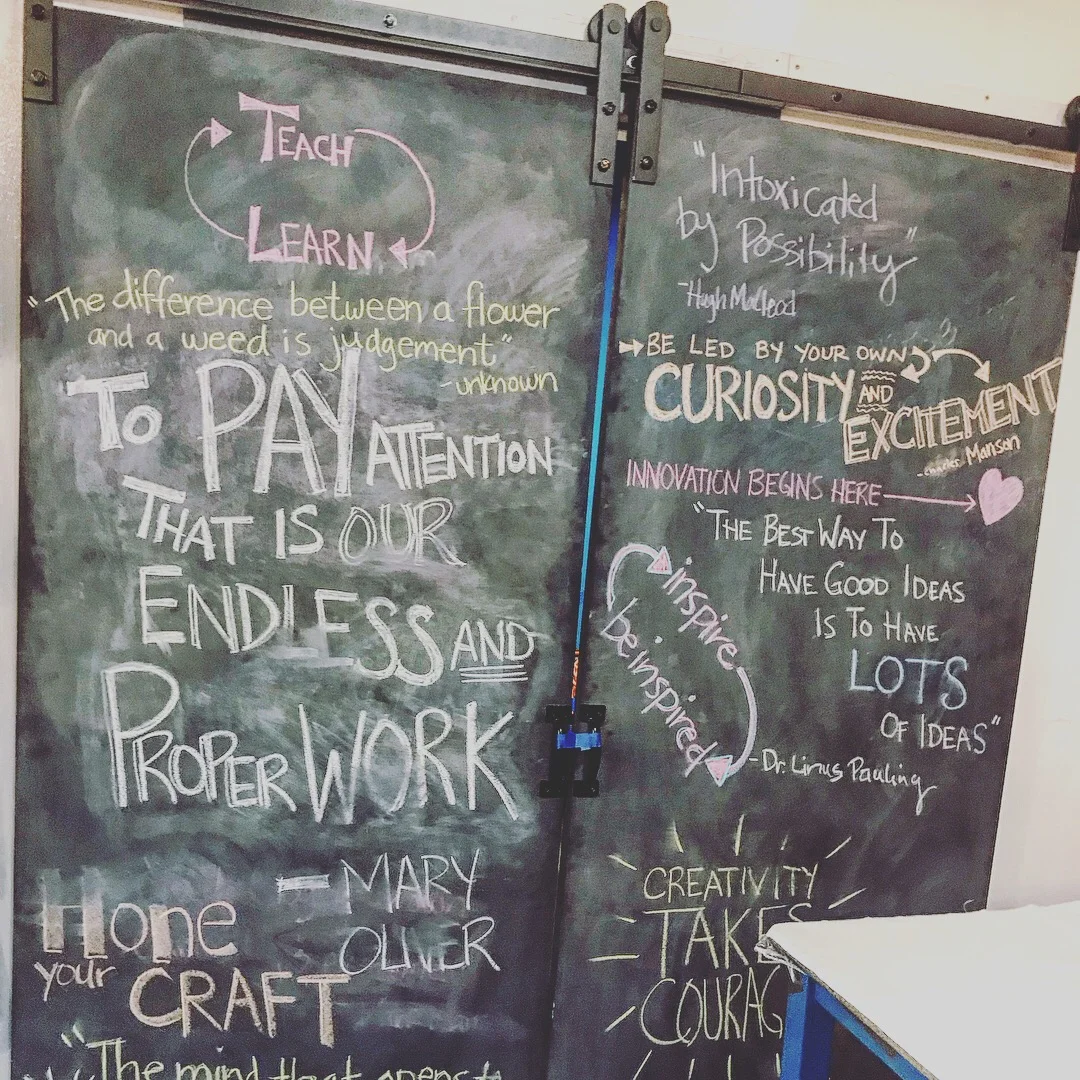 TEACH
LEARN
"The difference between a flower
and a weed is judgement"
-unknown
TO PAY ATTENTION
THAT IS OUR
ENDLESS AND
PROPER WORK
— MARY
OLIVER
Hone
your CRAFT
"The mind that opens to
"Intoxicated
by Possibility"
-Hugh MacLeod
BE LED BY YOUR OWN
CURIOSITY AND
EXCITEMENT
-Charles Manson
INNOVATION BEGINS HERE
"THE BEST WAY TO
HAVE GOOD IDEAS
IS TO HAVE
LOTS
OF IDEAS"
-Dr. Linus Pauling
inspire
be inspired
CREATIVITY
TAKES
COURAG